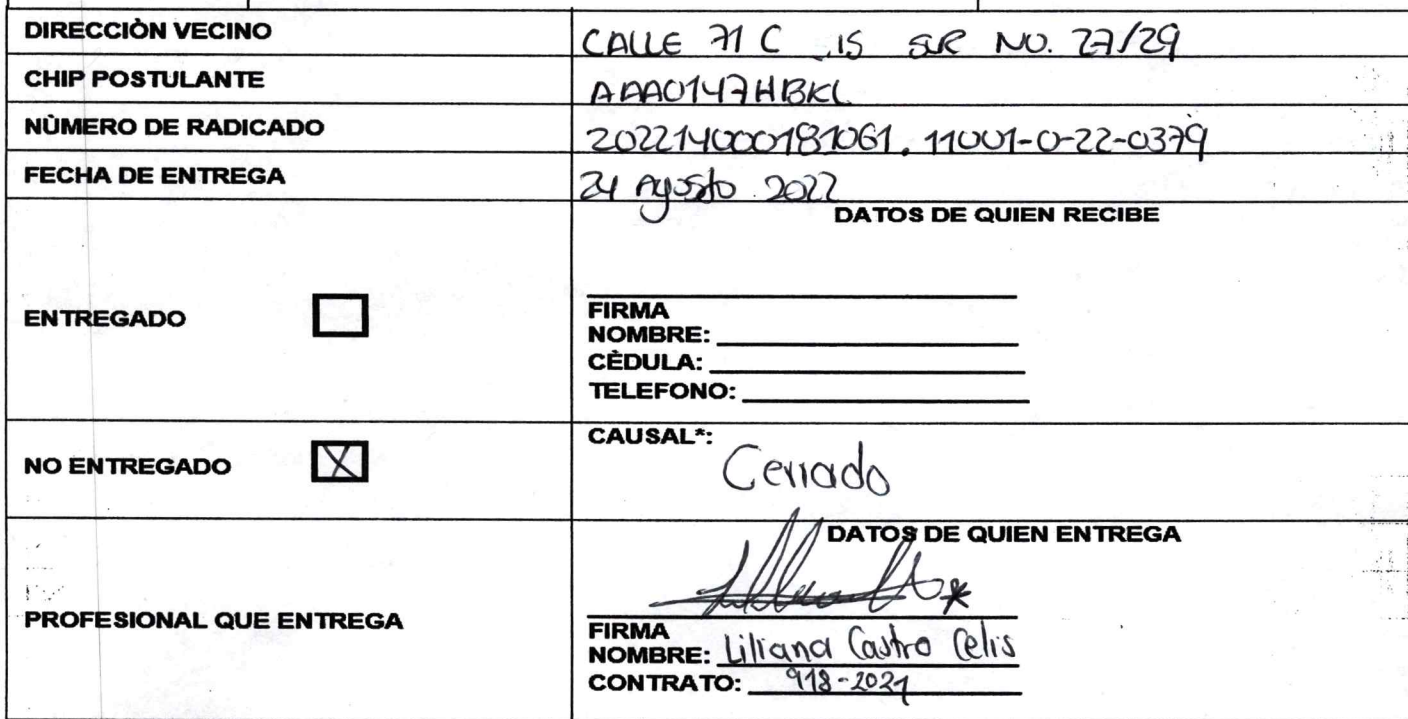 DIRECCIÒN VECINO CALLE 71 C 15 SUR NO. 27/29
CHIP POSTULANTE AAA0147HBKL
NÙMERO DE RADICADO 202214000181061. 11001-0-22-0379
FECHA DE ENTREGA 24 Agosto 2022
DATOS DE QUIEN RECIBE
ENTREGADO
FIRMA
NOMBRE:
CÈDULA:
TELEFONO:
NO ENTREGADO X
CAUSAL*:
Cerrado
DATOS DE QUIEN ENTREGA
PROFESIONAL QUE ENTREGA
FIRMA
NOMBRE: Liliana Castro Celis
CONTRATO: 918-2021